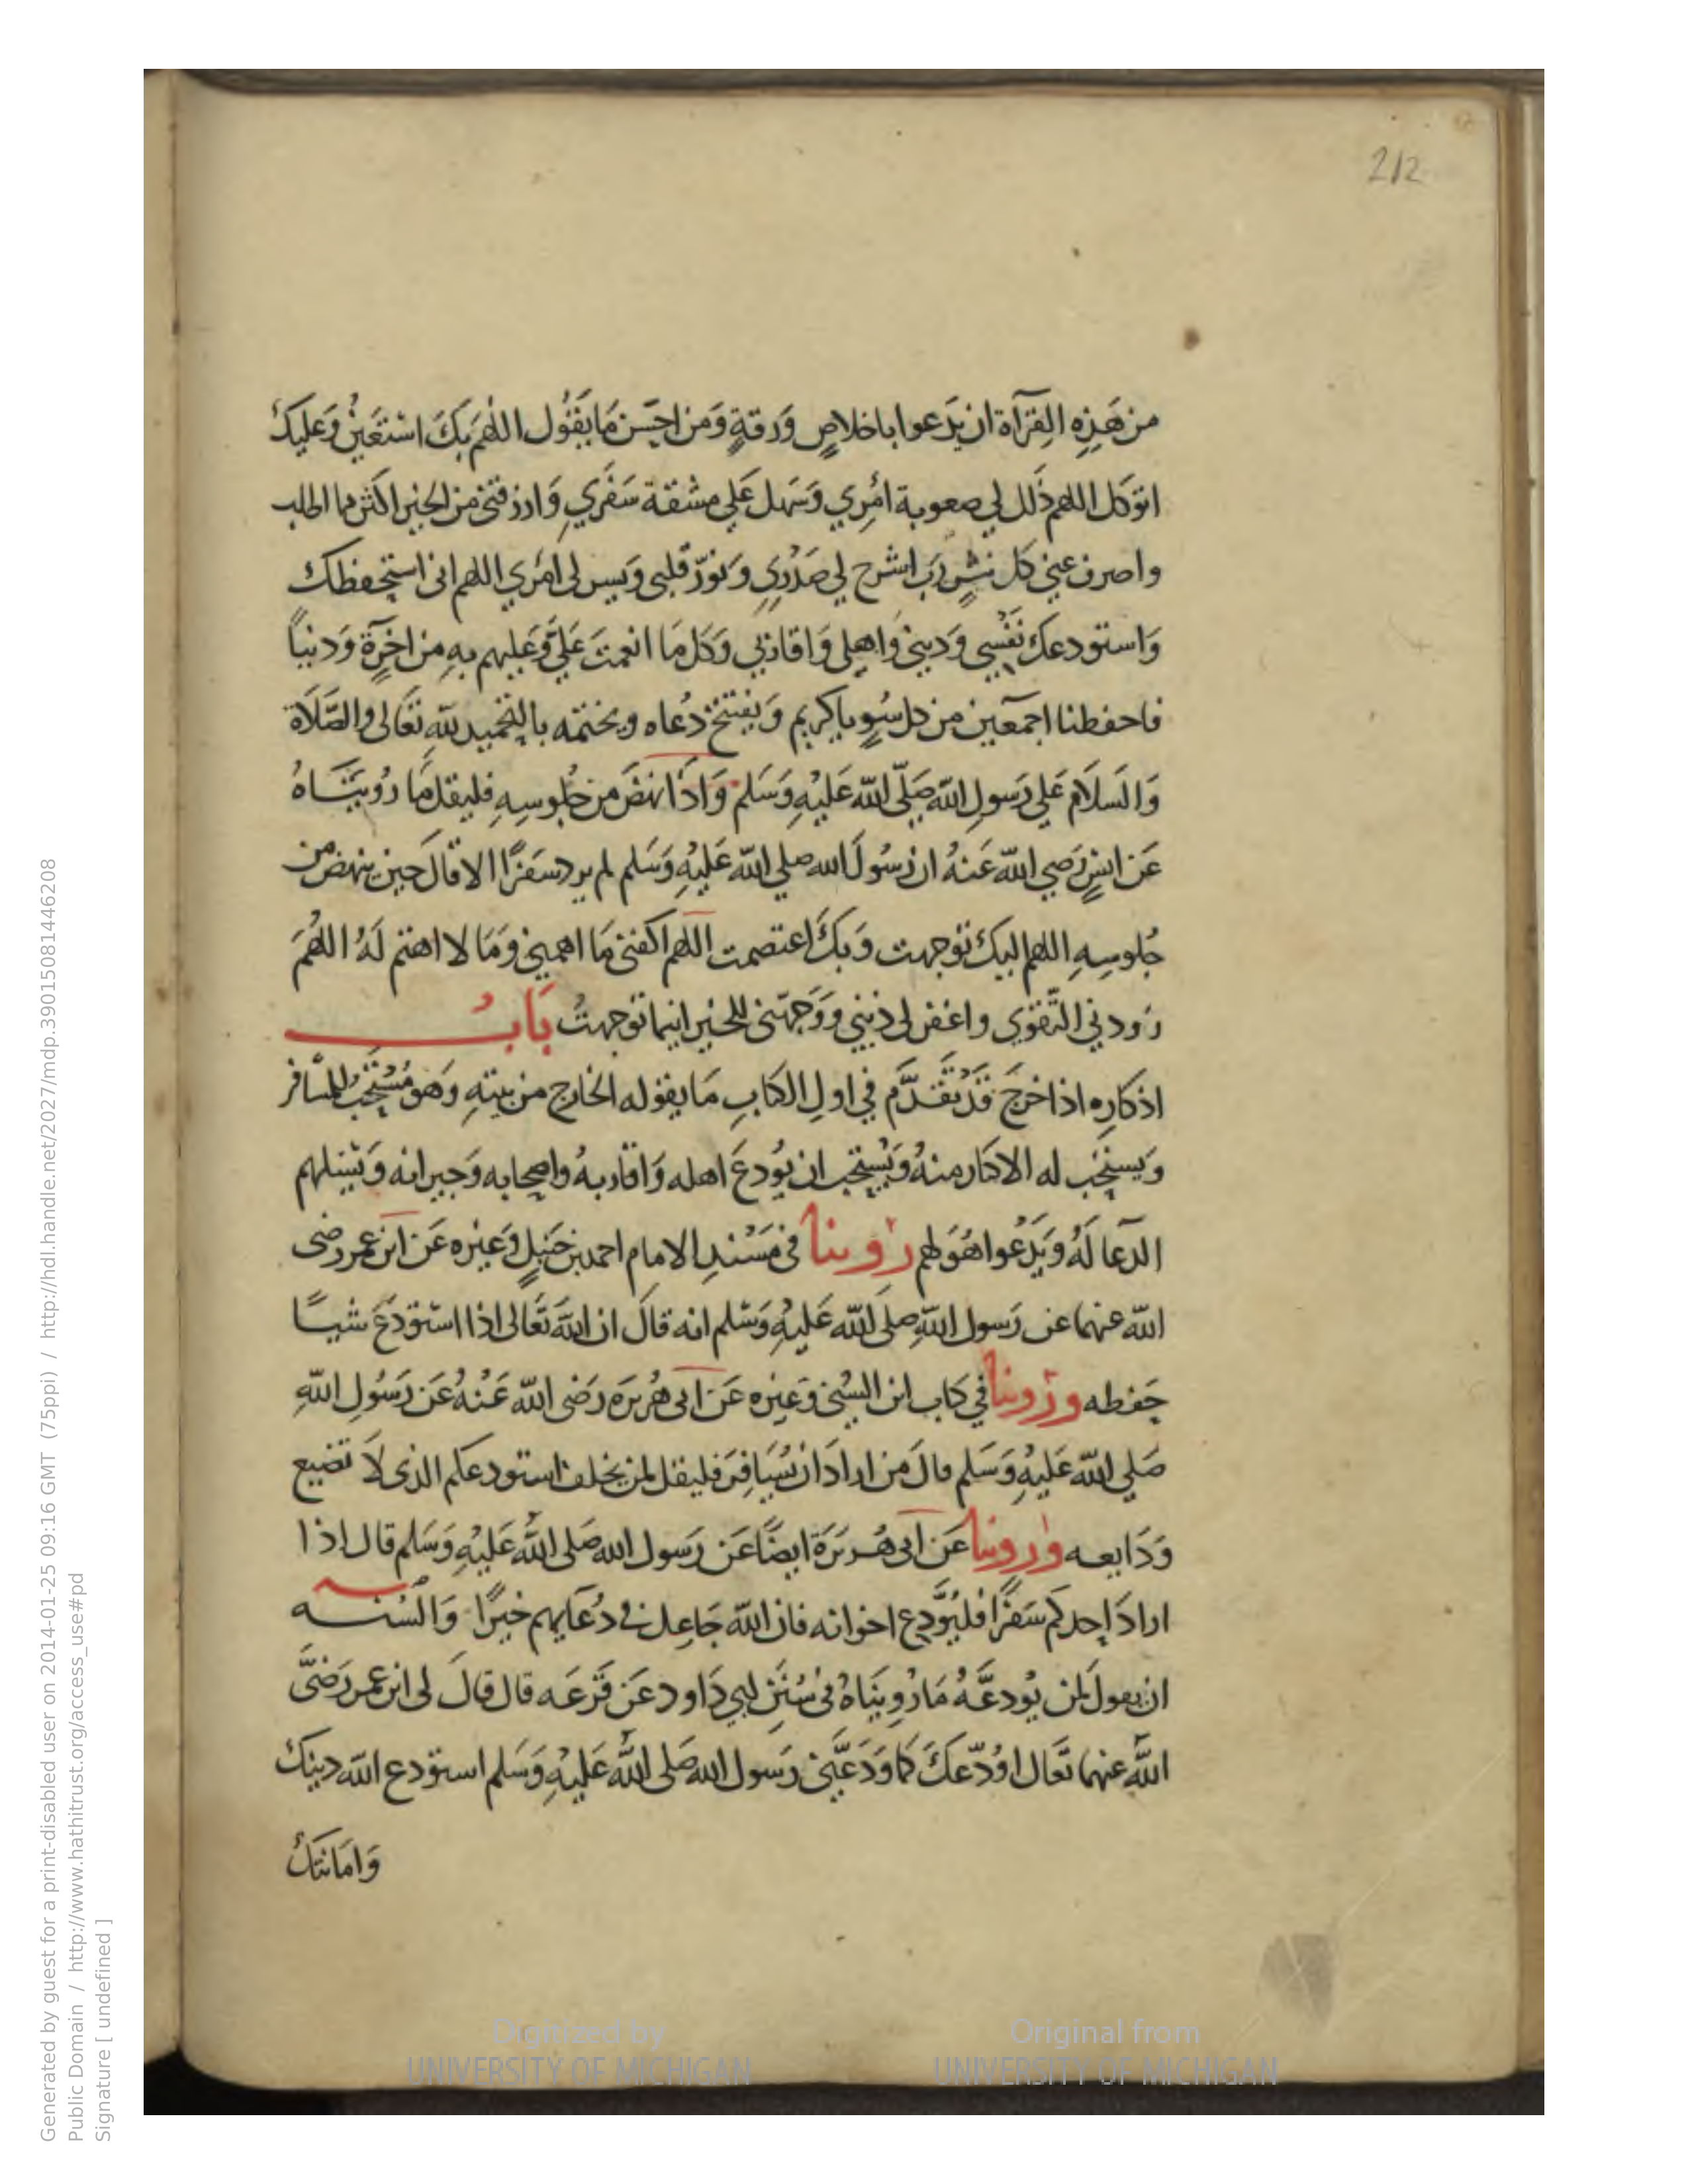 212
من هَذِهِ القِرَآة ان يَدعوا باخلاصٍ وَرقةٍ وَمن احسَن مَا يَقُول اللهُمَ بكَ اسْتعَينُ وَعَليكَ
اتوكل اللهم ذَلل لي صعوبة امْرِي وَسَهل عَلي مشقة سَفَرِي وَارزقني من الخير اكثر مما اطلب
واصرف عني كل شرٍ رَب اشرح لي صَدْرِي وَنوّر قلبي وَيسر لي امْرِي اللهم اني استحفظك
وَاستودعك نَفْسِي وَديني وَاهلي وَاقاربي وَكل مَا انعمتَ عَليَّ وَعَليهم بهِ من اخِرَةٍ وَدنيا
فاحفظنا اجمعين من كل سُوٍ يا كريم وَيفتتح دُعاه ويختمه بالتحميد للهِ تعَالى والصَّلَاة
وَالسَلَام عَلي رَسولِ الله صَلّى الله عَليْهِ وَسَلم وَاذا نهَضَ من جُلوسِهِ فليقل مَا رُوينَاهُ
عَن انسٍ رَضِي الله عَنهُ ان رَسُولَ الله صلي الله عَليْهِ وَسَلم لم يرد سَفرًا الا قالَ حين ينهض من
جُلوسِهِ اللهم اليك توجهت وَبكَ اعتصمت اللهم اكفني مَا اهمني وَمَا لا اهتم لَهُ اللهُمَ
زودني التَّقوي واغفر لي ذنبي وَوَجهّني للخير اينما توجهتُ بَابُ
اذكارِه اذا خرجَ قَدْ تقَدَّم في اولِ الكتابِ مَا يقوله الخارج من بيتهِ وَهو مُسْتَحَبُ للمسَافر
وَيستحَب له الاكثار منهُ وَيُسْتحَب ان يُودعَ اهله وَاقاربهُ واصحابه وَجيرانه وَيَسْئلهم
الدعَا لَهُ وَيَدْعوا هُوَ لهم رُوينا في مسْندِ الامام احمد بن حَنبَلٍ وَغيره عَن ابن عمر رضى
الله عنهما عن رَسول اللهِ صلَى الله عَليْهِ وَسَلم انه قالَ ان اللهَ تعَالى اذا اسْتودعَ شيـًا
حَفظه ورُوينا في كتاب ابن السُني وَغيره عَن ابى هُريرَه رَضى الله عَنْهُ عَن رَسُولِ اللهِ
صَلي الله عَليْهِ وَسَلم قالَ من ارادَ ان يُسَافِرَ فليقل لمن يخلف استودعكم الذي لَا تضيع
وَدَايعه ورُوينا عَن ابى هُريرَة ايضًا عَن رَسول الله صَلى اللهُ عَليْهِ وَسَلم قال اذا
ارادَ احدكم سَفرًا فليُوَدع اخوانه فان الله جَاعِل في دُعَايهم خيرًا وَالسُنه
ان يقول لمن يُودعَّهُ مَا رُوينَاهُ في سُنَن ابي دَاود عَن قَزعَه قال قالَ لى ابن عمر رَضَى
اللهُ عنهما تعَال اوُدّعكَ كما وَدَعَّني رَسول الله صَلى اللهُ عَليْهِ وَسَلم استودع الله دينك
وَامَانتكَ
Digitized by
UNIVERSITY OF MICHIGAN
Original from
UNIVERSITY OF MICHIGAN
Generated by guest for a print-disabled user on 2014-01-25 09:16 GMT (75ppi) / http://hdl.handle.net/2027/mdp.39015081446208
Public Domain / http://www.hathitrust.org/access_use#pd
Signature [ undefined ]